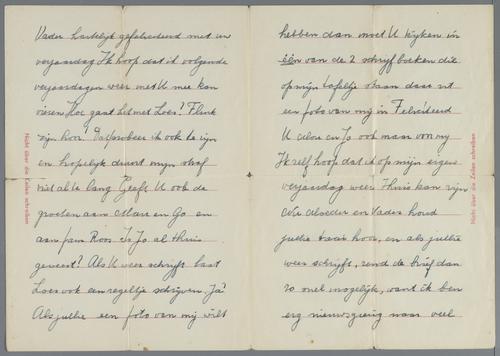 Vader hartelijk gefeliciteerd met uw
verjaardag Ik hoop dat ik volgende
verjaardagen weer met U mee kan
vieren Hoe gaat het met Loes? Flink
zijn hoor! Dat probeer ik ook te zijn
en hopelijk duurt mijn straf
niet al te lang Geeft U ook de
groeten aan Marie en Go en
aan fam Roos Is Jo al thuis
geweest? Als U weer schrijft laat
Loes ook een regeltje schrijven. Ja?
Als jullie een foto van mij wilt
Nicht über die Zeilen schreiben
hebben dan moet U kijken in
één van de 2 schrijf boeken die
op mijn tafeltje staan daar zit
een foto van mij in Feliciteerd
U Moe en Jo ook maar van mij
Ik zelf hoop dat ik op mijn eigen
verjaardag weer thuis kan zijn
Moeder en Vader houd
jullie taai hoor, en als jullie
weer schrijft, zend de brief dan
zo snel mogelijk, want ik ben
erg nieuwsgierig naar veel
Nicht über die Zeilen schreiben